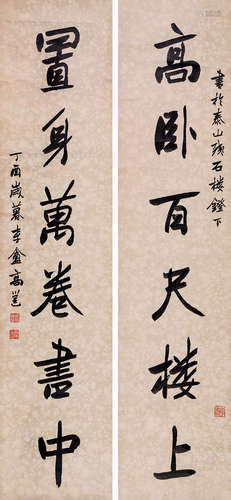 高卧百尺楼上
書於泰山殘石樓鐙下
置身萬卷書中
丁酉歲暮李盦高邕